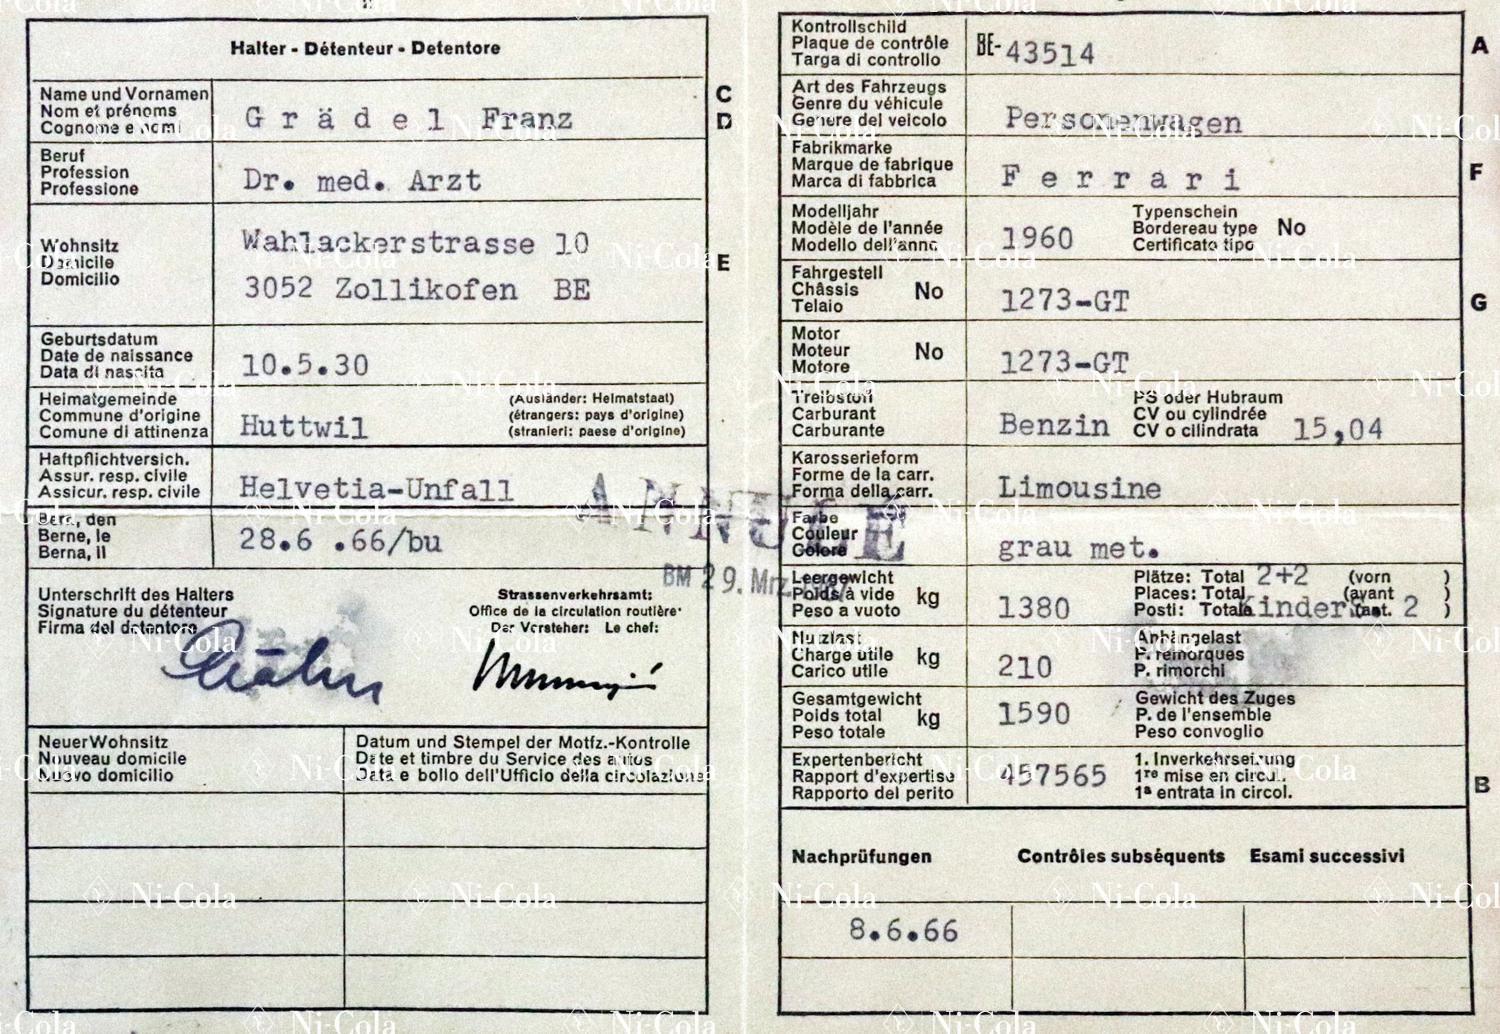 Halter - Détenteur - Detentore
Name und Vornamen
Nom et prénoms
Cognome e nomi
Grädel Franz
C
D
Beruf
Profession
Professione
Dr. med. Arzt
Wohnsitz
Domicile
Domicilio
Wahlackerstrasse 10
3052 Zollikofen BE
E
Geburtsdatum
Date de naissance
Data di nascita
10.5.30
Heimatgemeinde
Commune d'origine
Comune di attinenza
Huttwil
(Ausländer: Heimatstaat)
(étrangers: pays d'origine)
(stranieri: paese d'origine)
Haftpflichtversich.
Assur. resp. civile
Assicur. resp. civile
Helvetia-Unfall
Bern, den
Berne, le
Berna, il
28.6 .66/bu
ANNULÉ
BM 29. Mrz.
Unterschrift des Halters
Signature du détenteur
Firma del detentore
Strassenverkehrsamt:
Office de la circulation routière
Der Vorsteher: Le chef:
Neuer Wohnsitz
Nouveau domicile
Nuovo domicilio
Datum und Stempel der Motfz.-Kontrolle
Date et timbre du Service des autos
Data e bollo dell'Ufficio della circolazione
Kontrollschild
Plaque de contrôle
Targa di controllo
BE-43514
A
Art des Fahrzeugs
Genre du véhicule
Genere del veicolo
Personenwagen
Fabrikmarke
Marque de fabrique
Marca di fabbrica
Ferrari
F
Modelljahr
Modèle de l'année
Modello dell'anno
1960
Typenschein
Bordereau type No
Certificato tipo
Fahrgestell
Châssis No
Telaio
1273-GT
G
Motor
Moteur No
Motore
1273-GT
Treibstoff
Carburant
Carburante
Benzin
PS oder Hubraum
CV ou cylindrée
CV o cilindrata
15,04
Karosserieform
Forme de la carr.
Forma della carr.
Limousine
Farbe
Couleur
Colore
grau met.
Leergewicht
Poids à vide kg
Peso a vuoto
1380
Plätze: Total 2+2 (vorn )
Places: Total (avant )
Posti: Totale Kinder (ant. 2 )
Nutzlast
Charge utile kg
Carico utile
210
Anhängelast
P. remorques
P. rimorchi
Gesamtgewicht
Poids total kg
Peso totale
1590
Gewicht des Zuges
P. de l'ensemble
Peso convoglio
Expertenbericht
Rapport d'expertise
Rapporto del perito
457565
1. Inverkehrsetzung
1re mise en circul.
1a entrata in circol.
B
Nachprüfungen Contrôles subséquents Esami successivi
8.6.66
Ni-Cola